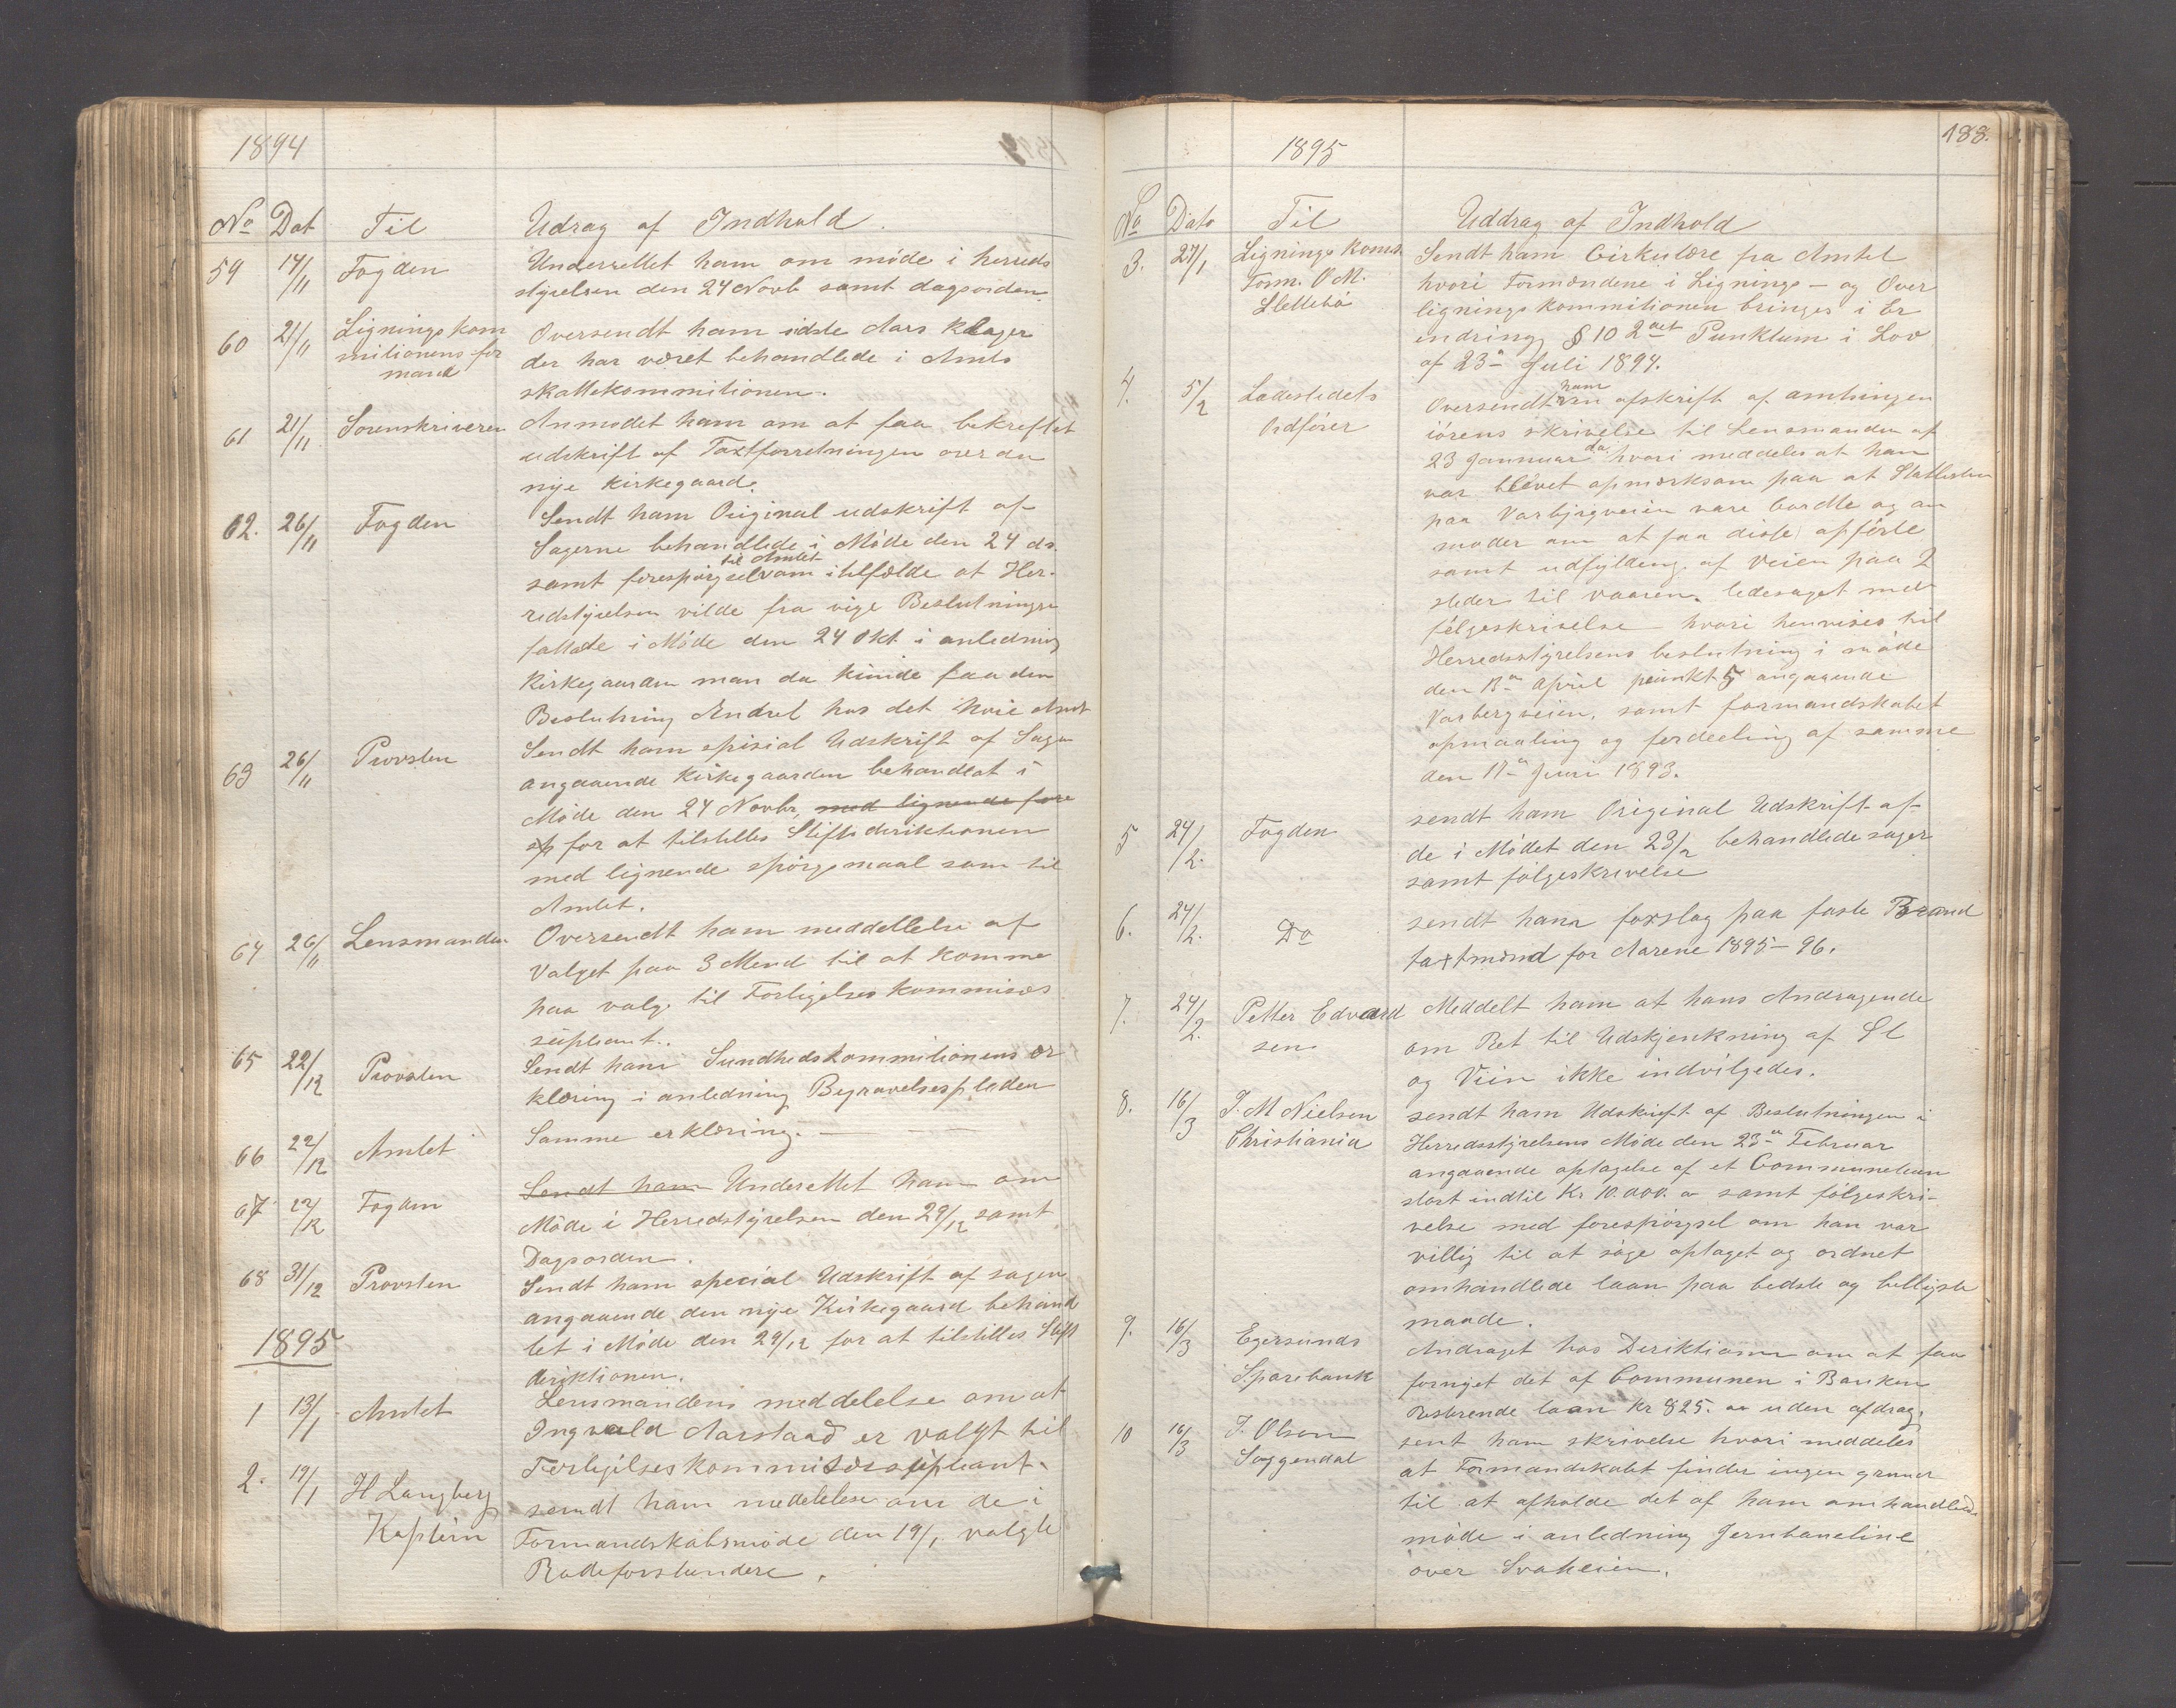 1894
No Dat Til Udrag af Indhold.
59 14/11 Fogden Underrettet ham om møde i herreds
styrelsen den 24 Novb samt dagsorden.
60 21/11 Lignings kom Oversendt ham sidste Aars klager
mitionens for der har været behandlede i Amts
mand skattekommitionen.
61 21/11 Sorenskriveren Anmodet ham om at faa bekreftet
udskrift af Taxtforretningen over den
nye kirkegaard.
62. 26/11 Fogden Sendt ham Original udskrift af
Sagerne behandlede i Møde den 24 ds.
til Amtet
samt forespørgsel om i tilfælde at Her-
redstyrelsen vilde fra vige Beslutningen
fattede i Møde den 24 Okt i anledning
Kirkegaarden man da kunde faa den
Beslutning Endret hos det høie Amt
63 26/11 Provsten Sendt ham spisial Udskrift af Sagen
angaaende Kirkegaarden behandlet i
Møde den 24 Novbr, med lignende fore
sp for at tilstilles Stiftsdiriktionen
med lignende spørgsmaal som til
Amtet.
64 26/11 Lensmanden Oversendt ham meddellelse af
Valget paa 3 Mend til at komme
paa valg til Forligelses kommisæs
supleant.
65 22/12 Provsten Sendt ham Sundhedskommitionens er
klæring i anledning Begravelsespladen
66 22/12 Amtet Samme erklæring. —
67 22/12 Fogden Sendt ham Underettet ham om
Møde i Herredstyrelsen den 29/12 samt
Dagsorden.
68 31/12 Provsten Sendt ham special Udskrift af sagen
angaaende den nye Kirkegaard behand
1895 let i Møde den 29/12 for at tilstilles Stift
diriktionen.
1 13/1 Amtet Lensmandens meddelelse om at
Ingvald Aarstad er valgt til
Forligelseskommisærsupleant.
2. 19/1 H Langberg sendt ham meddelelse om de i
Kaptein Formandskabsmøde den 19/1 valgte
Rodeforstandere.
1895 188.
No Dato Til Uddrag af Indhold
3. 27/1 Lignings koms. Sendt ham Cirkulære fra Amtet
Form. O M. hvori Formændene i Lignings - og Over
Slettebø ligningskommitionen bringes i Er
indring § 10 2det Punktum i Lov
af 23de Juli 1894.
4. 5/2 Ladestedets Oversendt ham afskrift af amtsingen
Ordfører iørens skrivelse til Lensmanden af
23 Januar da. hvori meddeles at han
var blevet opmerksom paa at
paa Varbjergveien vare bordte og an
moder om at faa disse opførte
samt udfylding af Veien paa 2
steder til vaaren. ledesaget med
følgeskrivelse hvori henvises til
Herredsstyrelsens beslutning i møde
den 13de April punkt 5 angaaende
Varbergveien, samt formandskabet
opmaaling og fordeeling af samme
den 17de Juni 1893.
5 24/2. Fogden sendt ham Original Udskrift af
de i Mødet den 23/2 behandlede sager
samt følgeskrivelse
6. 24/2. Do sendt ham forslag paa faste Brand
taxtmænd for Aarene 1895-96.
7. 24/2. Petter Edvard Meddelt ham at hans Andragende
sen om Ret til Udskjenkning af Øl
og Viin ikke indvilgedes.
8. 16/3 J. M Nielsen sendt ham Udskrift af Beslutningen i
Christiania Herredsstyrelsens Møde den 23de Februar
angaaende optagelse af et Communelaan
stort indtil Kr 10.000. samt følgeskri-
velse med forespørgsel om han var
villig til at søge optaget og ordnet
omhandlede laan paa bedste og billigste
maade.
9. 16/3 Egersunds Andraget hos Diriktionen om at faa
Sparebank fornyet det af Communen i Banken
Resterende laan Kr 825. uden afdrag.
10 16/3 J. Olsen sent ham skrivelse hvori meddeles
Soggendal at Formandskabet finder ingen grund
til at afholde det af ham omhandlede
møde i anledning Jernbaneline
over Svaheien.